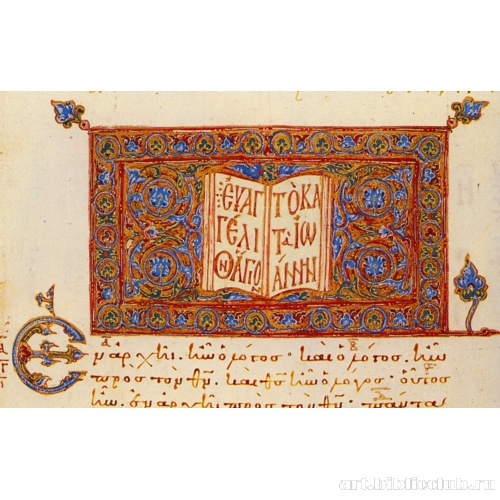 ΕΥΑΓ
ΓΕΛΙ
ΟΝ ΑΓΙΟ
ΤῸ ΚΑ
ΤΑ ΙΩ
ΑΝΝΗΝ
Ἐν ἀρχῆι ἦν ὁ λόγος· καὶ ὁ λόγος ἦν
πρὸς τὸν θν· καὶ θς ἦν ὁ λόγος· οὗτος
ἦν ἐν ἀρχῆι πρὸς τὸν θν· πάντα
art.biblioclub.ru